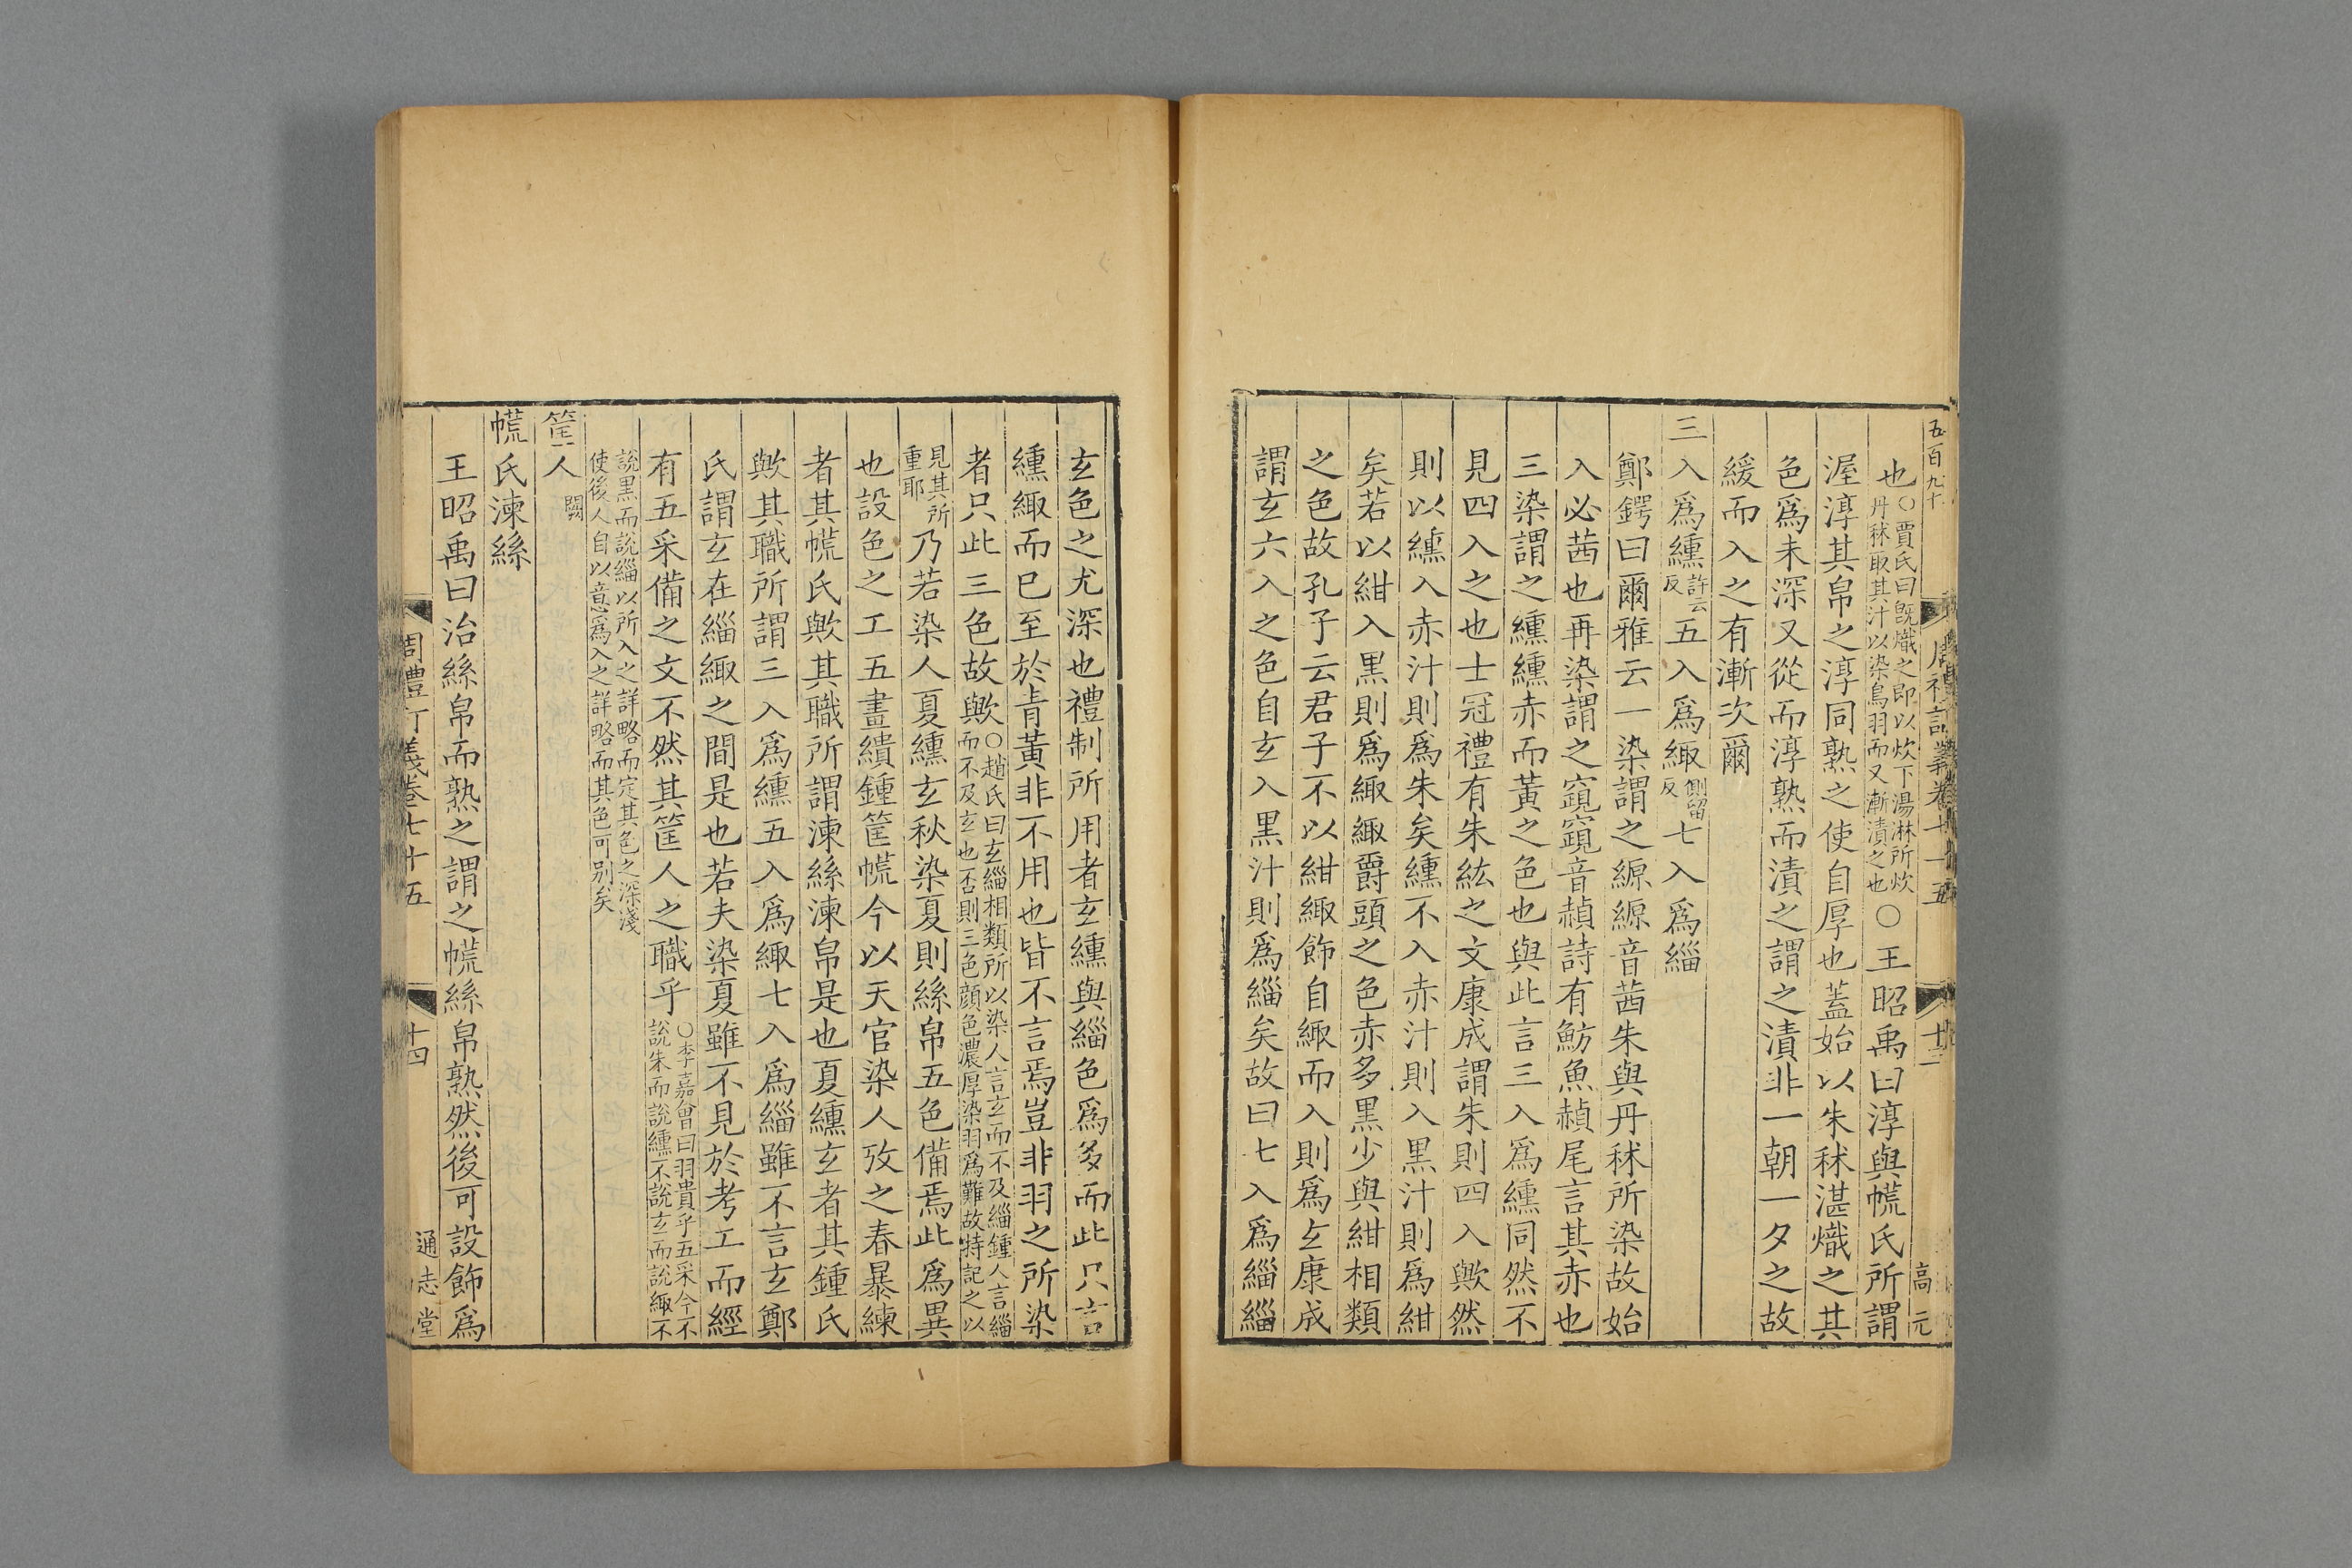 五百九十
周禮訂義卷七十五
十三
高元
也○賈氏曰旣熾之即以炊下湯淋所炊丹秫取其汁以染鳥羽而又漸漬之也○王昭禹曰淳與㡛氏所謂
渥淳其帛之淳同熟之使自厚也蓋始以朱秫湛熾之其
色爲未深又從而淳熟而漬之謂之漬非一朝一夕之故
緩而入之有漸次爾
三入爲纁許云反五入爲緅側留反七入爲緇
鄭鍔曰爾雅云一染謂之縓縓音茜朱與丹秫所染故始
入必茜也再染謂之窺窺音赬詩有魴魚赬尾言其赤也
三染謂之纁纁赤而黃之色也與此言三入爲纁同然不
見四入之也士冠禮有朱紘之文康成謂朱則四入歟然
則以纁入赤汁則爲朱矣纁不入赤汁則入黑汁則爲紺
矣若以紺入黑則爲緅緅爵頭之色赤多黑少與紺相類
之色故孔子云君子不以紺緅飾自緅而入則爲玄康成
謂玄六入之色自玄入黑汁則爲緇矣故曰七入爲緇緇
玄色之尤深也禮制所用者玄纁與緇色爲多而此只言
纁緅而已至於青黃非不用也皆不言焉豈非羽之所染
者只此三色故歟○趙氏曰玄緇相類所以染人言玄而不及緇鍾人言緇而不及玄也否則三色顔色濃厚染羽爲難故特記之以
見其所重耶乃若染人夏纁玄秋染夏則絲帛五色備焉此爲異
也設色之工五畫繢鍾筐㡛今以天官染人攷之春暴練
者其㡛氏歟其職所謂湅絲湅帛是也夏纁玄者其鍾氏
歟其職所謂三入爲纁五入爲緅七入爲緇雖不言玄鄭
氏謂玄在緇緅之間是也若夫染夏雖不見於考工而經
有五采備之文不然其筐人之職乎○李嘉會曰羽貴乎五采今不說朱而說纁不說玄而說緅不
說黑而說緇以所入之詳略而定其色之深淺使後人自以意爲入之詳略而其色可别矣
筐人闕
㡛氏湅絲
王昭禹曰治絲帛而熟之謂之㡛絲帛熟然後可設飾爲
周禮訂義卷七十五
十四
通志堂